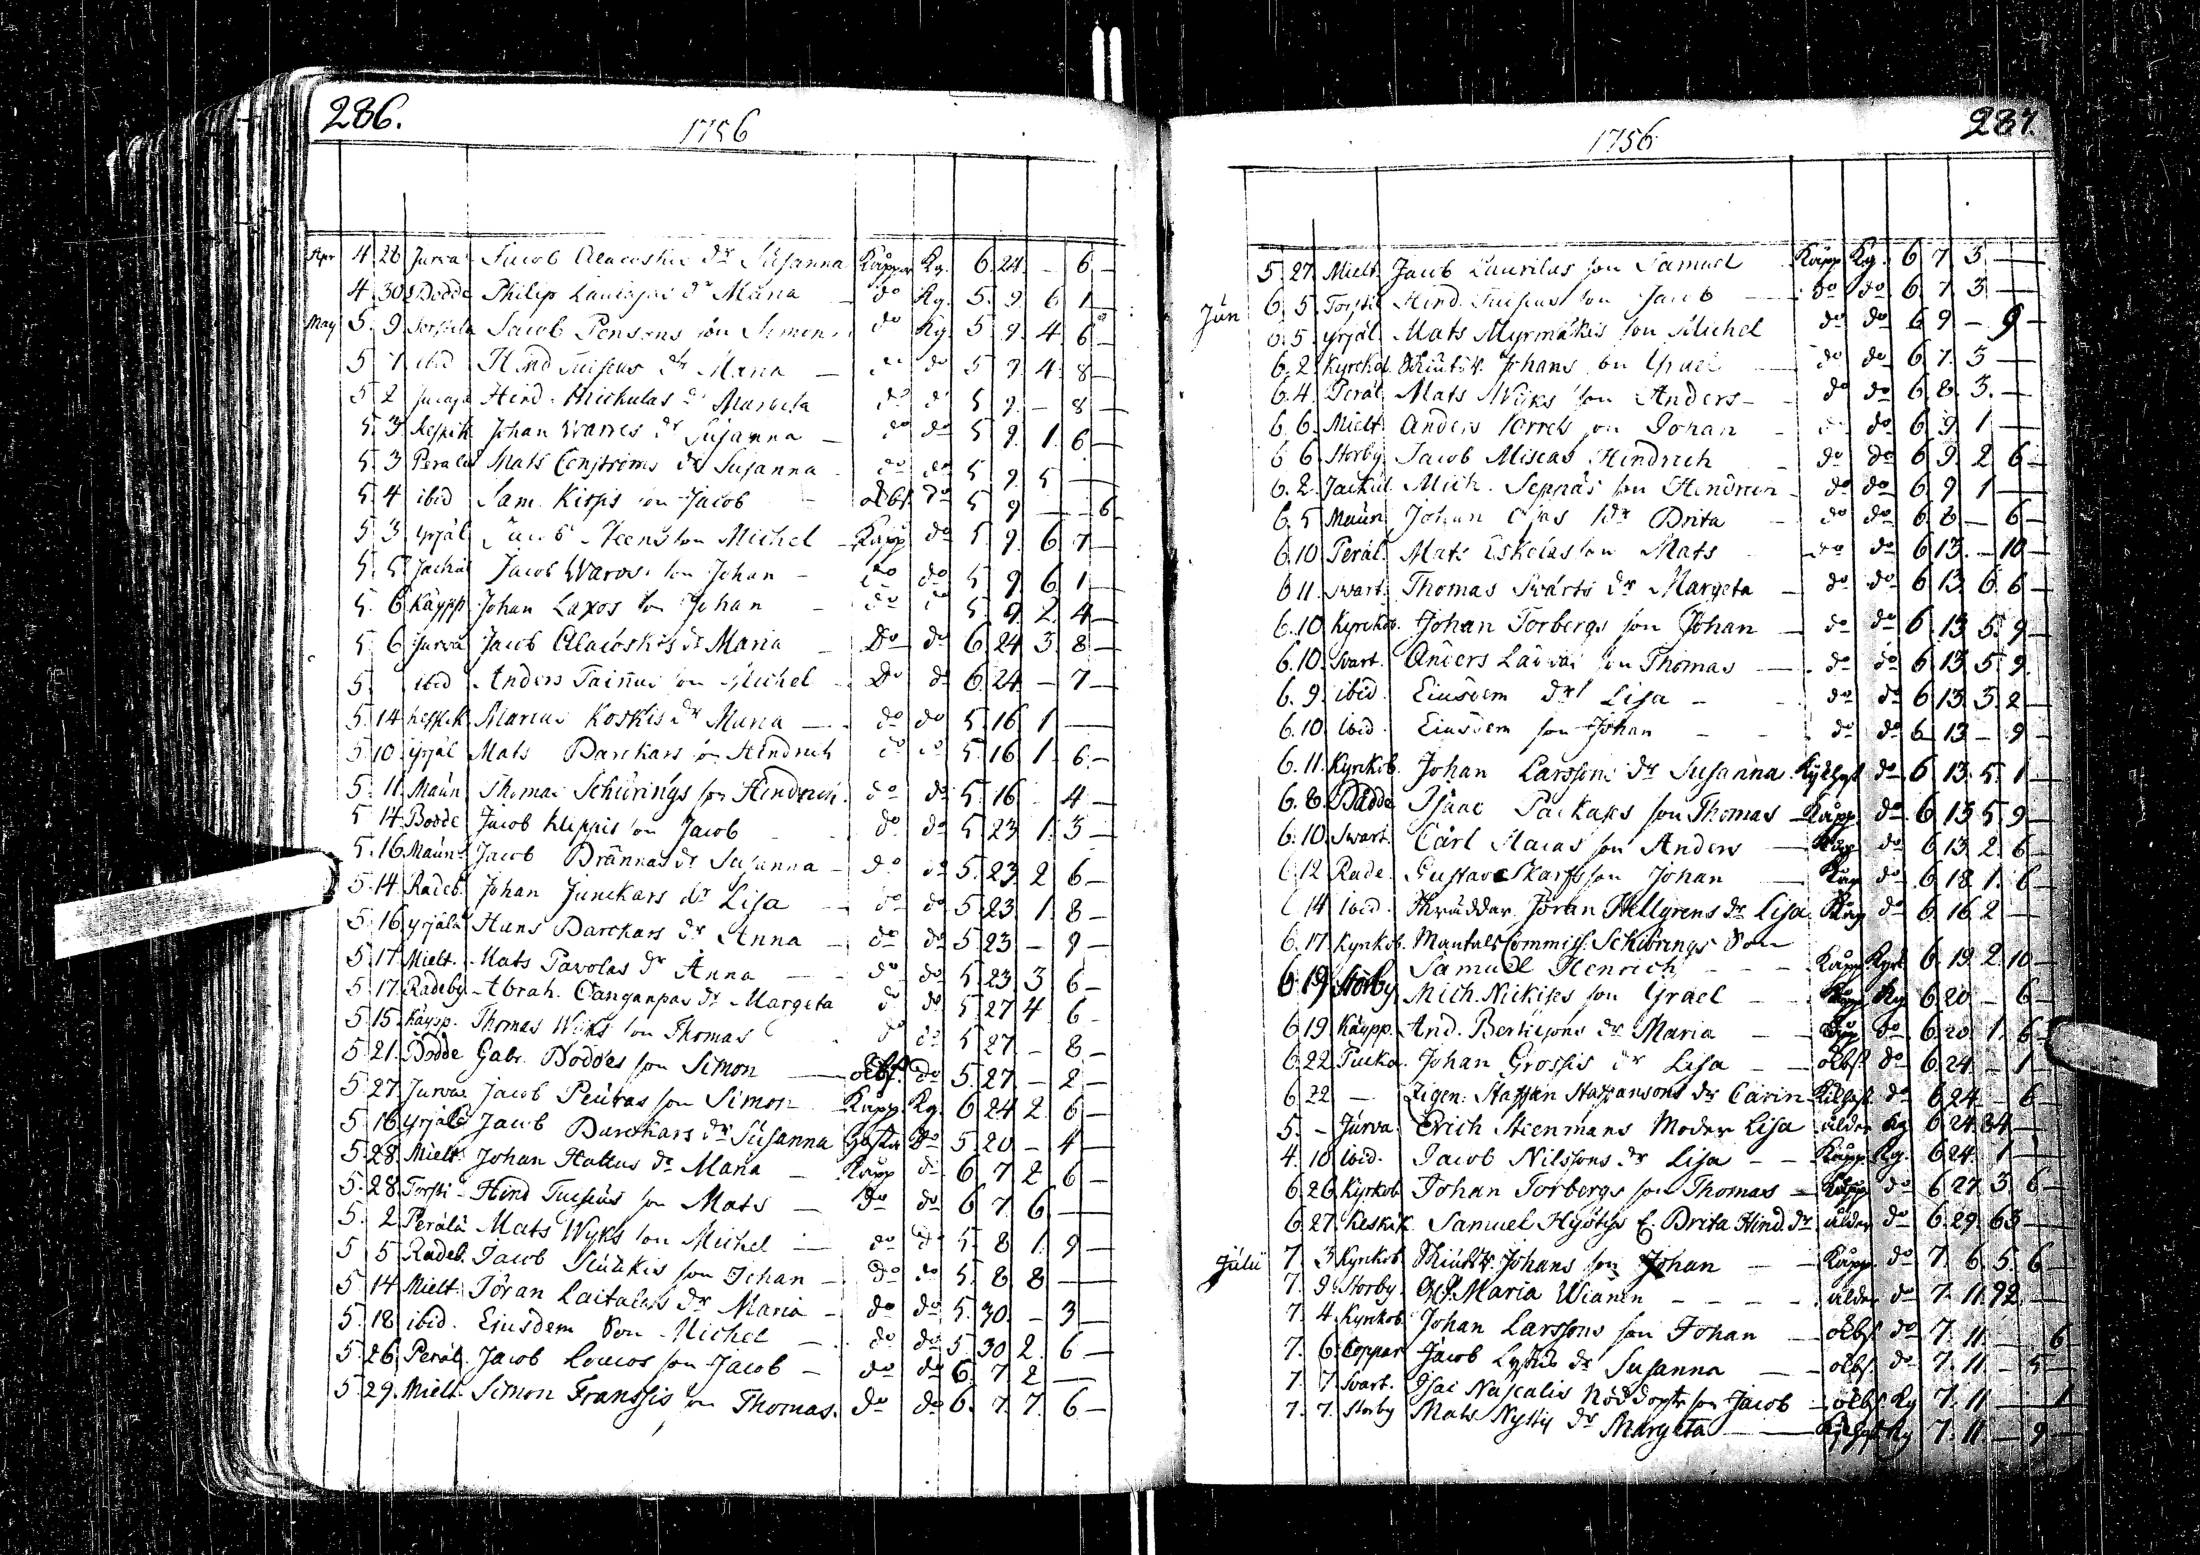 286.
1756
Apr 4 26 Jurva Jacob Alacoskis dr Susanna Kåppor Kg. 6. 24 - 6 -
4. 30 Bodde Philip dr Maria - do Kg. 5. 9. 6 1 -
May 5 9 Jacob Pensons son Simon do Kg 5 9. 4 6 -
5 1 ibid Hind Tuiscus dr Maria - do 5 9. 4. 8 -
5 2 Hind. Michulas dr Margeta do do 5 9. - 8 -
5. 3 Keskik Johan Warres dr Susanna - do do 5 9. 1. 6 -
5. 3 Perälä Mats Censtroms dr Susanna do do 5 9 5 -
5. 4 ibid Sam. Kirpis son Jacob - oebs do 5 9 - - 6
5 3 Yrjäl Jacob son Michel - Kåpp do 5 9. 6 7 -
5. 5 Jackul Jacob Waros son Johan - do do 5 9 6 1 -
5. 6 Käypp Johan Laxos son Johan - do do 5 9 2. 4 -
5 6 Jurva Jacob Alacoskis dr Maria - Do do 6 24 3 8 -
5. ibid Anders son Michel - Do do 6 24 - 7 -
5. 14 Keskik Marcus Koskis dr Maria - do do 5 16 1 -
5. 10 Yrjäl Mats Barckars son Hindrich do do 5. 16 1 6 -
5. 11. Maun Thomas Schürings son Hindrich. do do 5 16 - 4 -
5 14 Bodde Jacob Klippis son Jacob - do do 5 23 1. 3 -
5. 16 Maun Jacob Brännas dr Susanna - do do 5. 23 2 6 -
5. 14 Radeb Johan Junckars dr Lisa - do do 5 23 1. 8 -
5. 16 Yrjälä Hans Barckars dr Anna - do do 5. 23 - 9 -
5. 17 Mielt. Mats Pavolas dr Anna - do do 5 23 3 6 -
5. 17. Radeby Abrah. Canganpas dr Margeta do do 5 27 4 6 -
5. 15. Käypp. Thomas Wyks son Thomas do do 5 27 - 8 -
5. 21. Bodde Gabr. Boddes son Simon - oebs. do 5. 27 - 2 -
5. 27 Jurva Jacob Peuras son Simon Kåpp. Kg. 6 24 2 6 -
5. 16 Yrjälä Jacob Barckars dr Susanna Hosta do 5. 20 - 4 -
5. 28. Mielt. Johan Hattus dr Maria - Kåpp do 6 7 2 6 -
5. 28 Torsti Hind Tuiscus son Mats - do do 6 7 6 -
5. 2 Perälä Mats Wyks son Michel - do do 5. 8 1. 9 -
5 5 Radeb. Jacob son Johan - do do 5. 8 8 -
5. 14 Mielt. Jöran Laitalas dr Maria - do do 5. 30. - 3 -
5. 18 ibid. Eiusdem Son Michel - do do 5. 30 2. 6 -
5. 26 Peräl. Jacob Loucos son Jacob - do do 6. 7 2 -
5. 29. Mielt. Simon Franssis son Thomas. do do 6. 7. 7. 6 -
287.
1756
5 27 Mielt. Jacob Laurilas son Samuel Kåpp Kg. 6 7 3 -
Jun 6 5 Torsti Hind. Tuiscus son Jacob - do do 6. 7. 3 -
6. 5. Yrjäl Mats Myrmäkis son Michel do do 6 9 - 9 -
6. 2 Kyrckob. Johans son do do 6 7. 5 -
6. 4. Peräl Mats Wyks son Anders - do do 6. 8 3. -
6 6. Mielt Anders Korrels son Johan do do 6 9 1 -
6 6 Storby Jacob Miscas Hindrich do do 6 9. 2 6 -
6. 2. Jackul Mich. Seppäs son Hindrich - do do 6 9 1 -
6. 5 Maun Johan Ojas dr Brita - do do 6 8 - 6 -
6. 10 Peräl. Mats Eskelas son Mats - do do 6 13. - 10 -
6 11. Swart. Thomas Swarts dr Margeta - do do 6 13 6. 6 -
6. 10 Kyrckob. Johan Torbergs son Johan - do do 6 13 5 9 -
6. 10. Svart. Anders son Thomas - do do 6 13 5 9.
6. 9. ibid. Eiusdem dr Lisa - do do 6 13 3 2 -
6. 10. ibid. Eiusdem son Johan - - do do 6 13 - 9 -
6. 11. Kyrckob. Johan Larssons dr Susanna. do 6 13. 5 1 -
6. 8. Bådde Isaac Packases son Thomas - Kåpp. do 6. 13 5 9 -
6. 10. Swart. Carl Macas son Anders - Kåp do 6 13 2. 6 -
6. 12. Rade. Gustav Skarfs son Johan - Kåp do 6. 18 1. 6 -
6. 14 ibid. Skräddar Jöran Hellgrens dr Lisa. Kåp do 6. 16 2 -
6. 17 Kyrckob. Mantals Commiss. Schürings Son
Samuel Henrich - - - Kåpp. Kyrk 6. 19. 2. 10 -
6. 19 Storby Mich. Nickises son Israel - - Kåpp Kg 6 20 - 6 -
6. 19 Käypp. And. Bertilsons dr Maria - - Kåp do 6. 20 1. 6 -
6. 22 Pucka Johan Grossis dr Lisa - - oebs. do 6. 24. - 1 -
6 22 - Zigen. Staffan Staffansons dr Carin do 6 24 - 6 -
5. - Jurva. Erich Steenmans Moder Lisa ålder Kg 6 24 84 -
4. 10 ibid. Jacob Nilssons dr Lisa - - Kåpp. Kg. 6 24 1 -
6. 26 Kyrkob. Johan Torbergs son Thomas - Kåpp do 6. 27. 3. 6 -
6. 27. Keskik. Samuel E. Brita Hind. dr ålder do 6. 29. 63 -
Julii 7. 3 Kyrckob. Johans son Johan - - Kåpp. do 7. 6. 5. 6 -
7. 9. Storby. Maria Wianen - - - - ålder do 7. 11. 92. -
7. 4. Kyrckob. Johan Larssons son Johan - oebs do 7. 11 - 6
7. 6. Coppar. Jacob dr Susanna - oebs. do 7. 11 - 5 -
7. 7. Svart. Isac Nuscalis Nöddopt son Jacob - oebs Kg 7. 11 - 1
7. 7. Storby Mats Nystis dr Margeta - Kg 7. 11 - 9 -